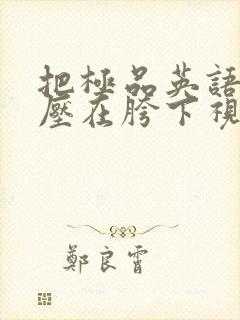 把極品英語
壓在胯下視
鄭良霄